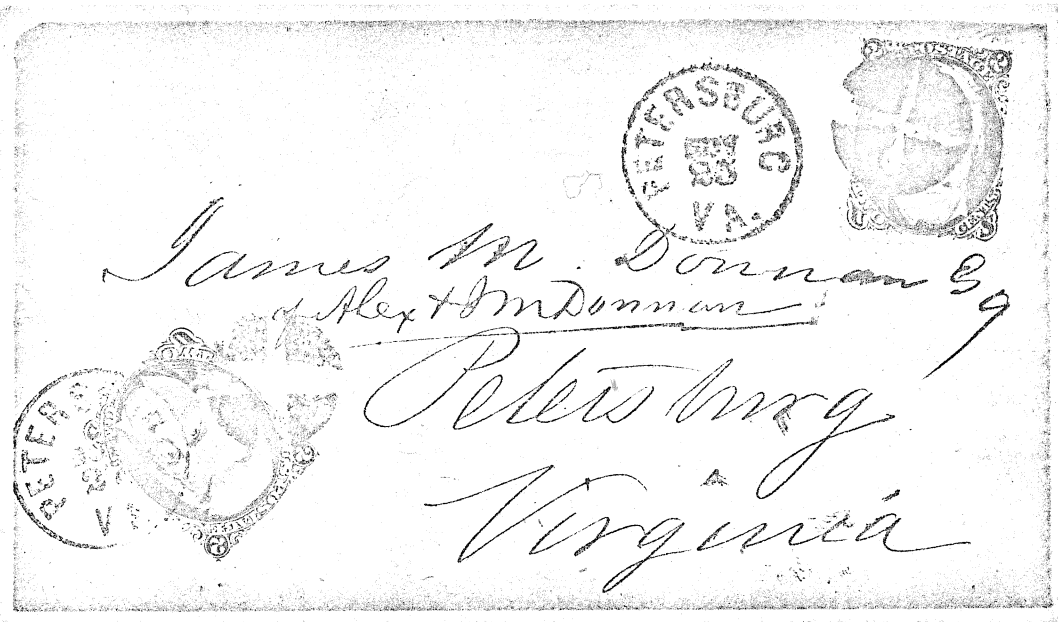 PETERSBURG
VA.
James M. Donnan Esq
of Alex & J M Donnan
Petersburg
Virginia
PETERS
VA